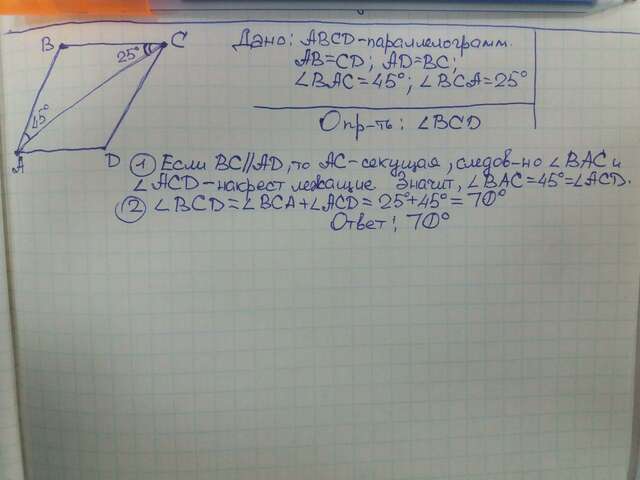 B
C
25°
45°
A
D
Дано: ABCD-параллелограмм.
AB=CD; AD=BC;
∠BAC=45°; ∠BCA=25°
Опр-ть: ∠BCD
① Если BC//AD, то AC-секущая, следов-но ∠BAC и
∠ACD-накрест лежащие. Значит, ∠BAC=45°=∠ACD.
② ∠BCD=∠BCA+∠ACD=25°+45°=70°
Ответ: 70°